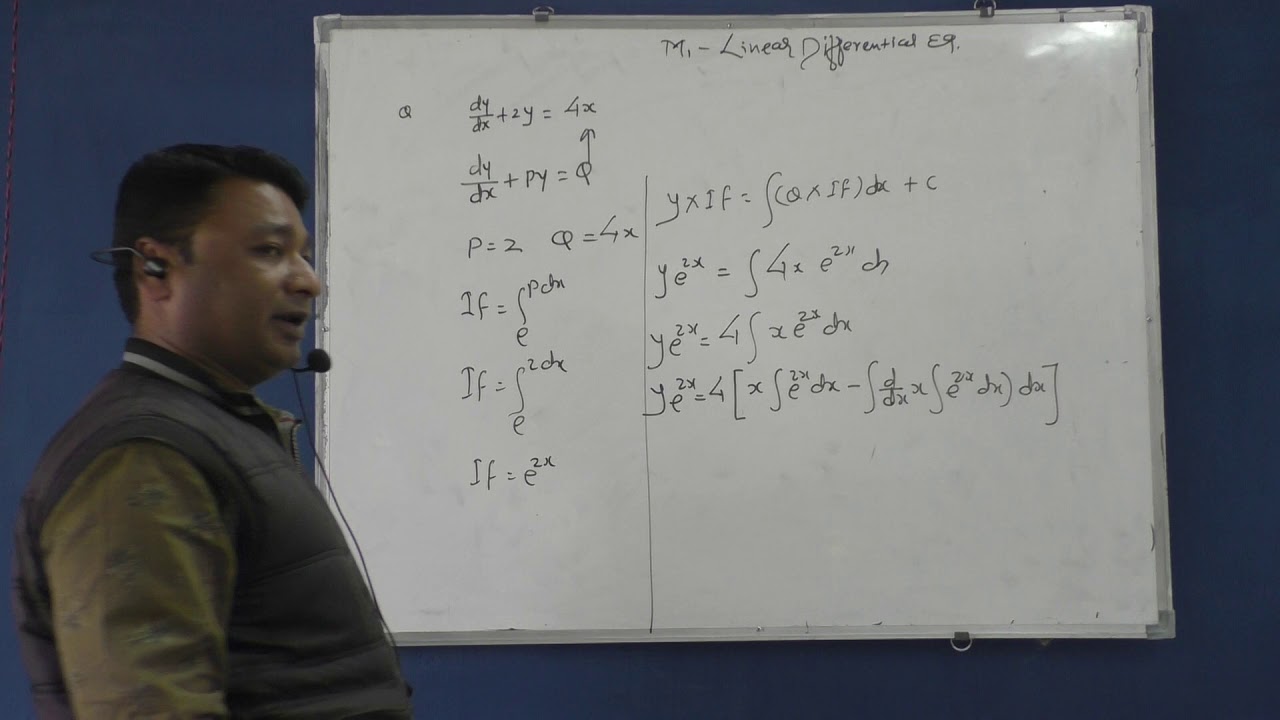 M₁ - Linear Differential Eq.
Q dy/dx + 2y = 4x
dy/dx + Py = Q
P = 2 Q = 4x
If = e^∫Pdx
If = e^∫2dx
If = e^2x
y × If = ∫(Q × If) dx + C
ye^2x = ∫ 4x e^2x dx
ye^2x = 4 ∫ x e^2x dx
ye^2x = 4 [x ∫ e^2x dx - ∫ d/dx x ∫ e^2x dx) dx]